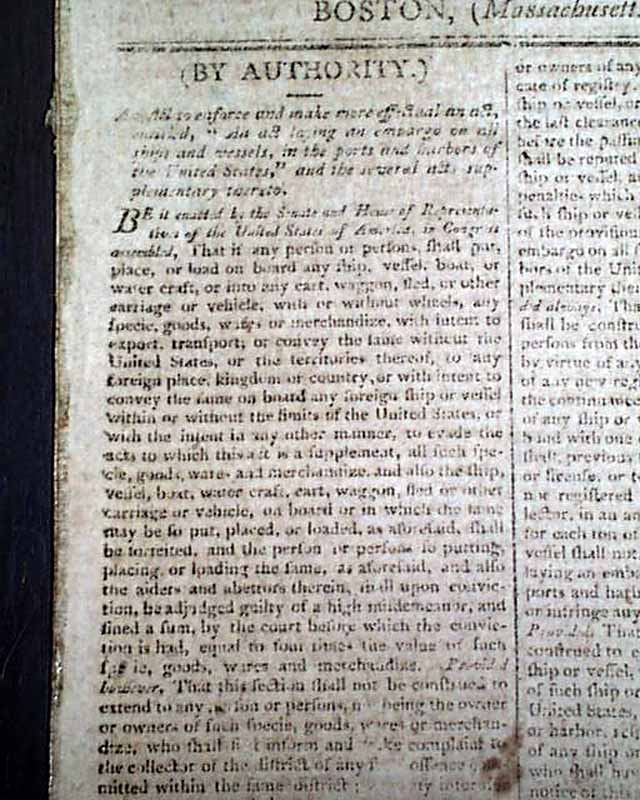 BOSTON, (Massachusett
(BY AUTHORITY.)
An Act to enforce and make more effectual an act,
entitled, " An act laying an embargo on all
ships and vessels, in the ports and harbors of
the United States," and the several acts sup-
plementary thereto.
BE it enacted by the Senate and House of Representa-
tives of the United States of America, in Congress
assembled, That if any person or persons, shall put,
place, or load on board any ship, vessel, boat, or
water craft, or into any cart, waggon, sled, or other
carriage or vehicle, with or without wheels, any
specie, goods, wares or merchandize, with intent to
export, transport, or convey the same without the
United States, or the territories thereof, to any
foreign place, kingdom or country, or with intent to
convey the same on board any foreign ship or vessel
within or without the limits of the United States, or
with the intent in any other manner, to evade the
acts to which this act is a supplement, all such spe-
cie, goods, wares and merchandize, and also the ship,
vessel, boat, water craft, cart, waggon, sled or other
carriage or vehicle, on board or in which the same
may be so put, placed, or loaded, as aforesaid, shall
be forfeited, and the person or persons so putting,
placing, or loading the same, as aforesaid, and also
the aiders and abettors therein, shall upon convic-
tion, be adjudged guilty of a high misdemeanor, and
fined a sum, by the court before which the convic-
tion is had, equal to four times the value of such
specie, goods, wares and merchandize. Provided
however, That this section shall not be construed to
extend to any person or persons, not being the owner
or owners of such specie, goods, wares or merchan-
dize, who shall first inform and make complaint to
the collector of the district of any offence com-
mitted within the same district;
or owners of any
cate of registry,
ship or vessel, or
the last clearance
before the
shall be reputed
ship or vessel, a
penalties which
such ship or ve
of the provisions
embargo on all s
bors of the Unit
plementary the
did always, Tha
shall be constr
persons from the
by virtue of any
of any new reg
the continuance
of any ship or
bond with one
shall, previous
or license, or t
nor registered
lector, in an am
for each ton of
vessel shall not
laying an emba
ports and harb
or intringe any
Provided That
construed to e
ship or vessel,
of such ship o
United States,
or harbor,
of any ship or
who shall have
notice of this